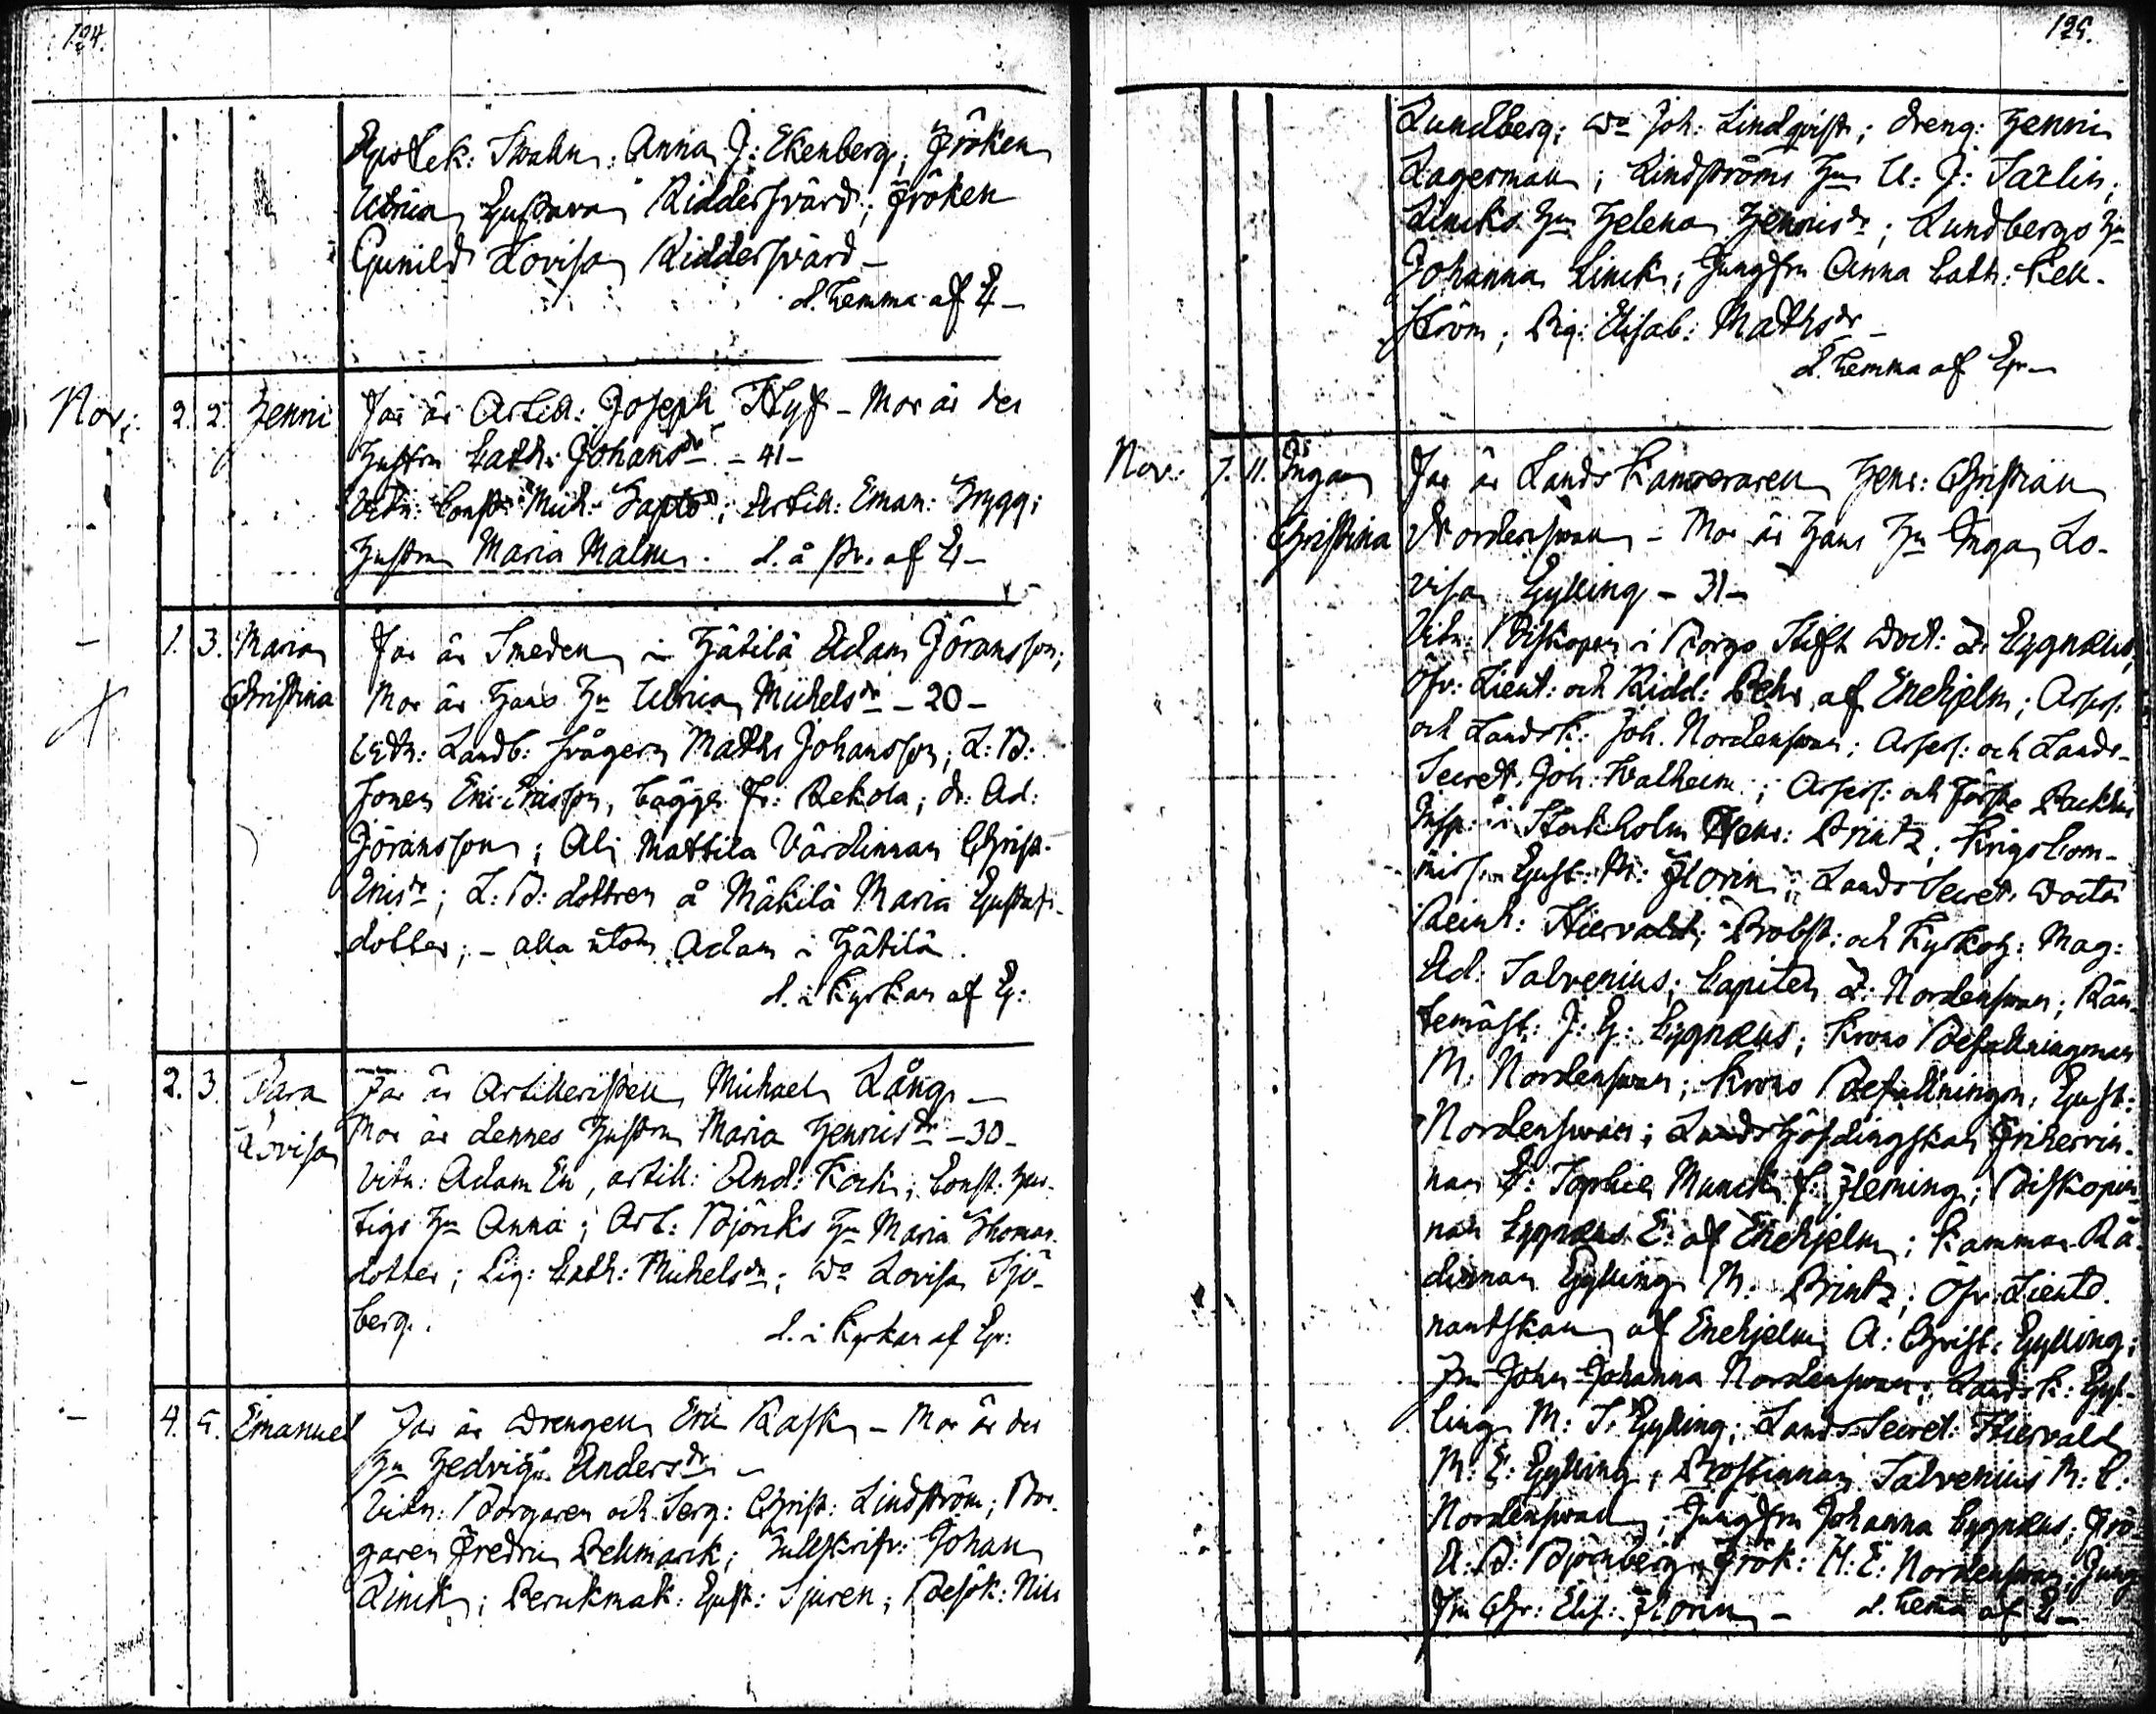 124.
Apotek: Swahn: Anna J: Ekenberg; Fröken
Ulrica Gustava Riddersvärd; Fröken
Gunild Lovisa Riddersvärd –
d. hemma af E –
Nov: 2. 2. Henric Far är Artill: Joseph Flyt – Mor är des
Hustru Cath: Johansdr – 41 –
Vitn: Const: Mich: ; Artill: Eman: Trygg;
Hustru Maria Malm. d. å af E –
– 1. 3. Maria Far är Smeden i Hätilä Adam Göransson;
Christina Mor är Hans Hu Ulrica Michelsdr – 20 –
Vitn: Landb: svågern Matths Johansson; L: B:
sonen Eric Ericsson, bägge fr: Rekola; dr: Ad:
Göransson; Ali Mattila Värdinnan Christ.
Ericsdr; L: B: dottren å Mäkilä Maria Gustafs-
dotter; – alla utom Adam i Hätilä.
d. i Kyrkan af Eg:
– 2. 3. Sara Far är Artilleristen Michael Lång –
Lovisa Mor är dennes Hustru Maria Henricsdr – 30 –
Vitn: Adam En, artill: And: Koch; Const: Hur-
tigs Hu Anna; Art: Björks Hu Maria Thomas-
dotter; Pig: Cath: Michelsdr; Do Lovisa Sjö-
berg. d. i Kyrkan af Eg:
– 4. 5. Emanuel Far är Drengen Eric Rask – Mor är des
Hu Hedvig Andersdr –
Vitn: Borgaren och Serg: Christ: Lindström; Bor-
garen Fredric Rehmark; Tullskrifv: Johan
Linck; Perukmak: Gust: Sjuren; Besök: Nils
125.
Lundberg; Do Joh: Lindqvist; dreng: Henric
Lagerman; Lindströms Hu U: J: Saxlin;
Lincks Hu Helena Henricsdr; Lundbergs Hu
Johanna Linck; Jungfru Anna Cath: Kell-
ström; Pig: Elisab: Mathsdr –
d. hemma af Eg –
Nov: 7. 11. Inga Far är Lands Kamreraren Henr: Christian
Christina Nordenswan – Mor är Hans Hu Inga Lo-
visa Gylling – 31 –
Vitn: Biskopen i Borgo Stift Doct: Z: Cygnæus;
Öfv: Lieut: och Ridd: Pehr af Enehjelm; Assess:
och Landsk: Joh. Nordenswan; Assess: och Lands-
Secret. Joh: Walheim; Assess: och Förste Packhus
Insp: i Stockholm Henr: Printz; Krigs Com-
miss: Gust: M: Florin; Lands Secret. Doctor
Reinh: Hiervald; Probst: och Kyrkoh: Mag:
Ad: Salvenius; Capiten Z: Nordenswan; Rän-
temäst: J: G: Cygnæus; Krono Befallningsman
M: Nordenswan; Krono Befallningsm: Gust:
Nordenswan; Landshöfdingskan Friherrin-
nan E: Sophie Munck f. Fleming; Biskopin-
nan Cygnæus E: af Enehjelm; Kammar Rå-
dinnan Gylling M: Printz; Öfv: Lieute-
nantskan af Enehjelm A: Christ: Gylling;
Fru Johanna Nordenswan; Landsk: Gyl-
ling M: S: Gylling; Lands Secret: Hiervald
M: E: Gylling; Prostinnan Salvenius M: C:
Nordenswan; Jungfru Johanna Cygnæus; Frö-
A: B: Björnberg; Frök: H: E: Nordenswan; Jung-
fru Chr: Elis: Florin – d. hema af E –